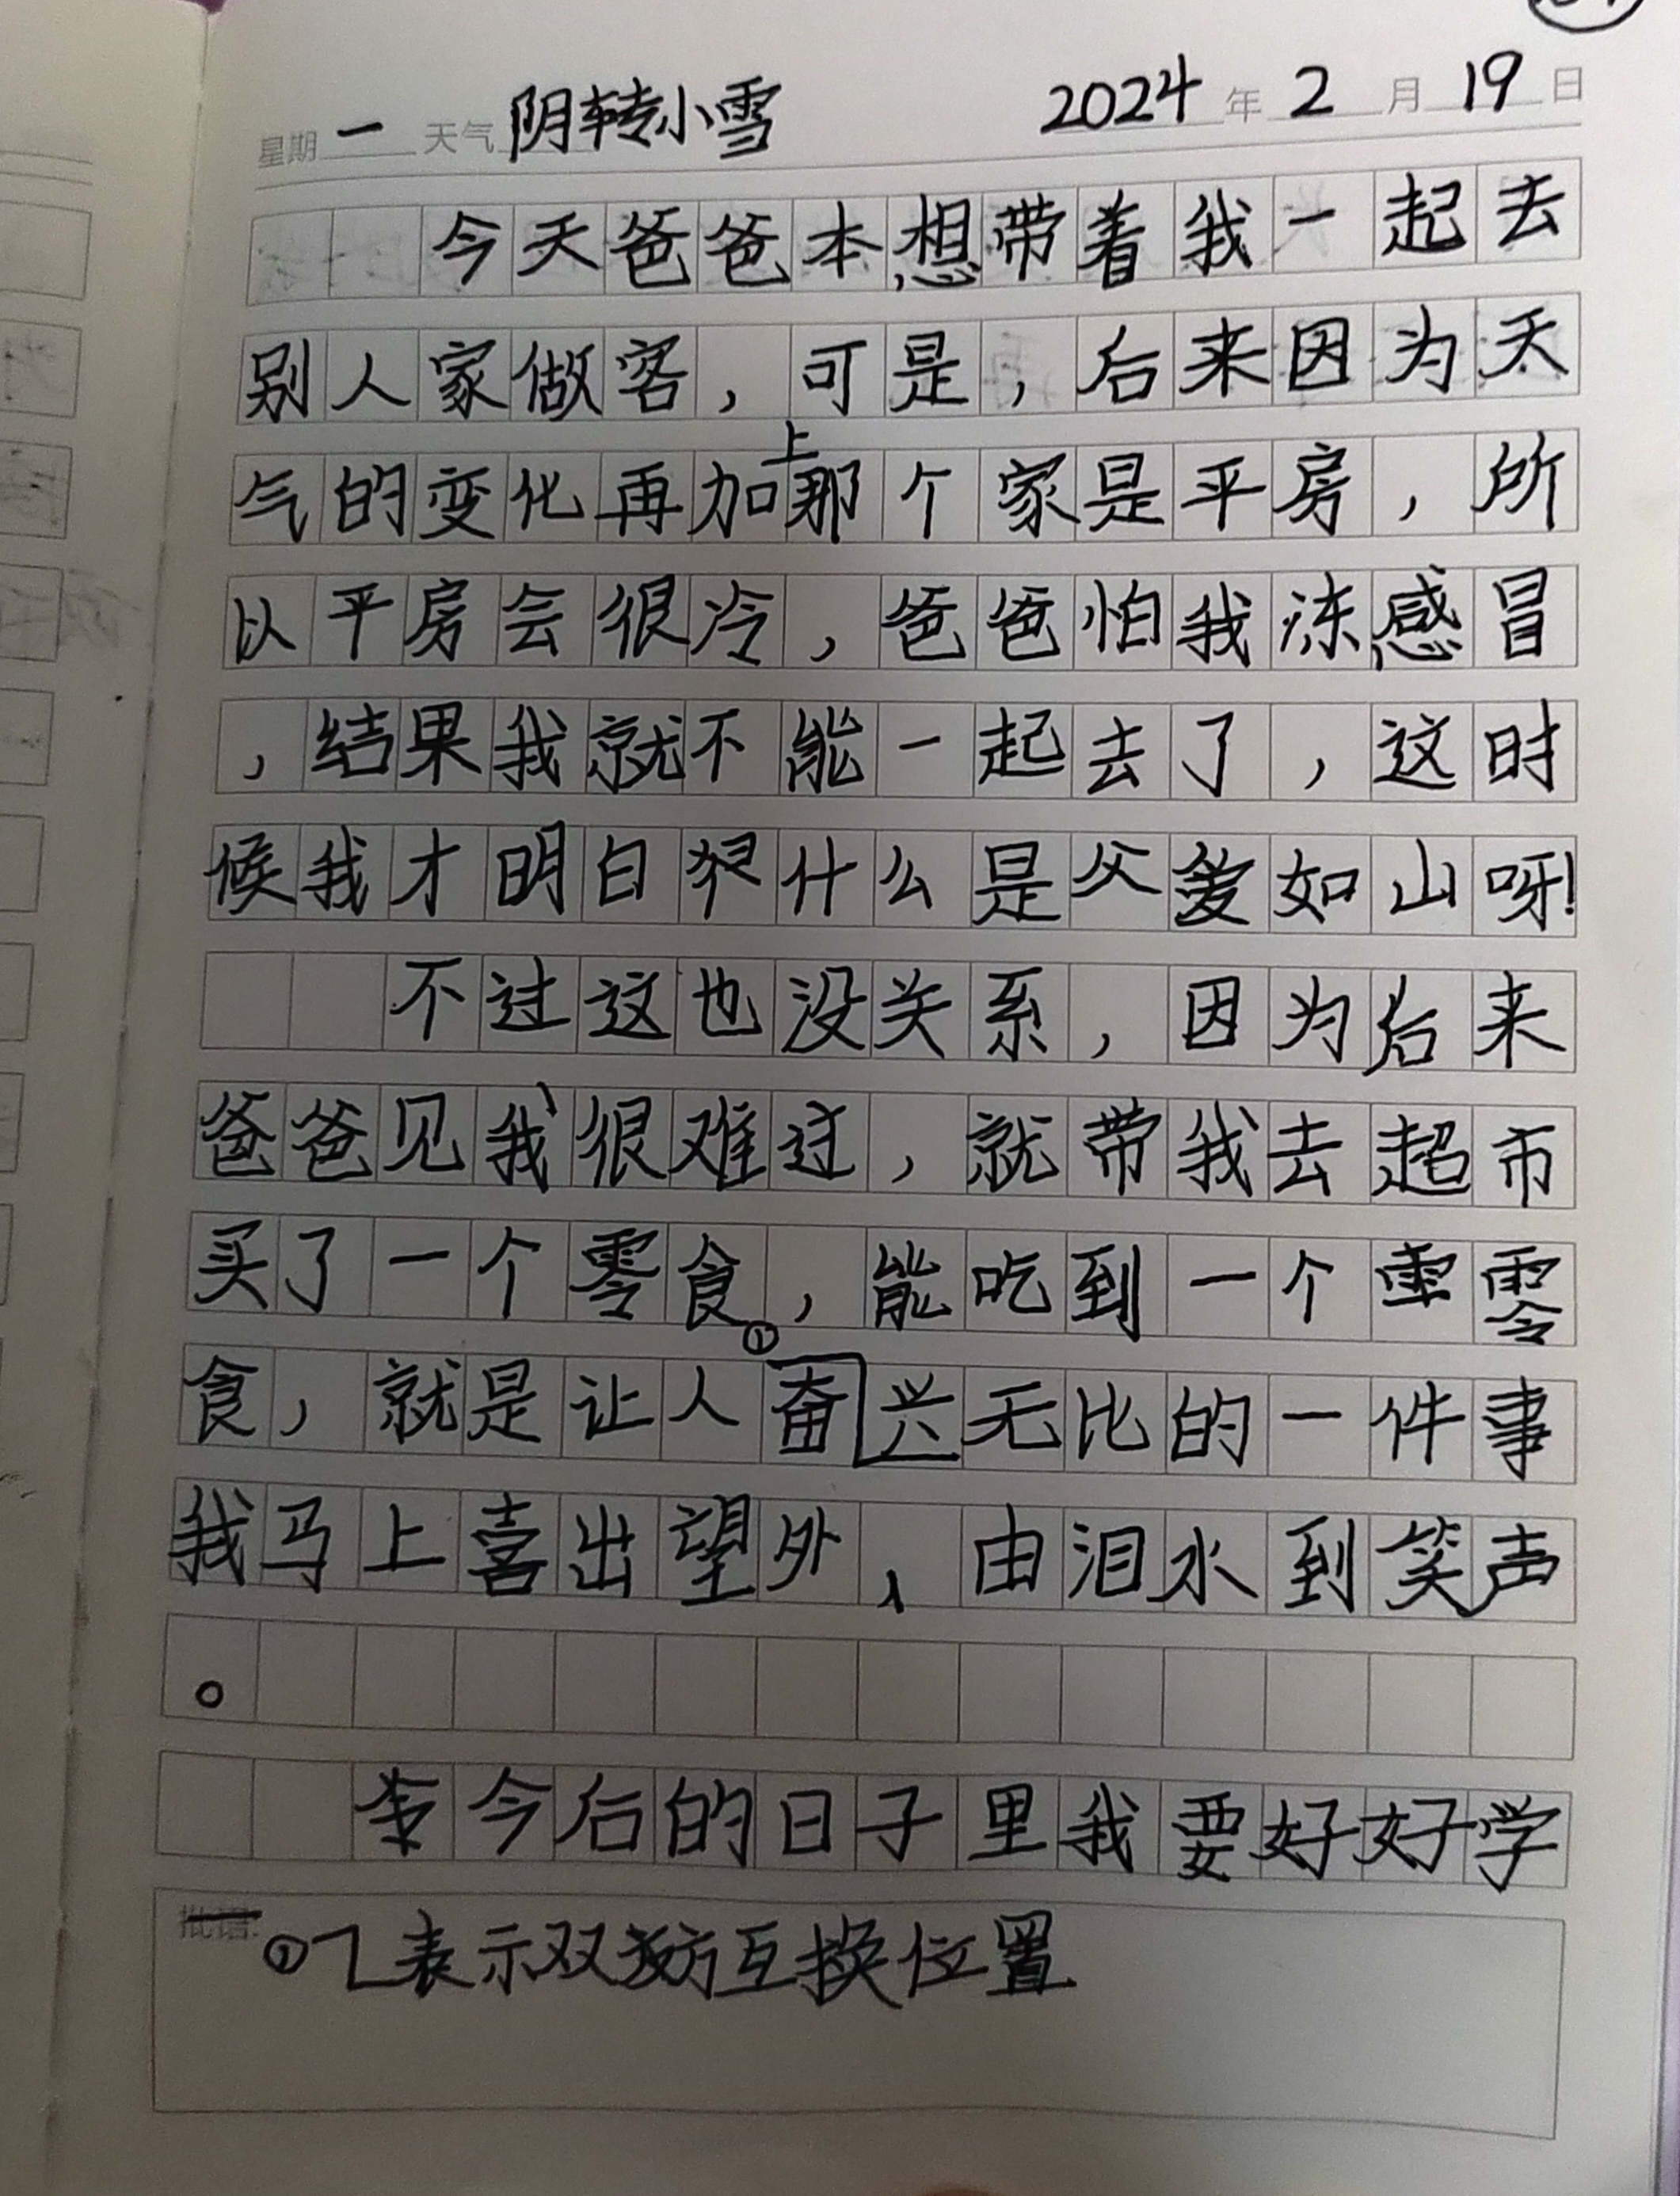 星期一 天气 阴转小雪 2024年2月19日
今天爸爸本想带着我一起去
别人家做客，可是，后来因为天
气的变化再加上那个家是平房，所
以平房会很冷，爸爸怕我冻感冒
，结果我就不能一起去了，这时
候我才明白什么是父爱如山呀！
不过这也没关系，因为后来
爸爸见我很难过，就带我去超市
买了一个零食，能吃到一个零
食，就是让人①奋兴无比的一件事
我马上喜出望外、由泪水到笑声
。
今后的日子里我要好好学
批语:
①乁表示双方互换位置